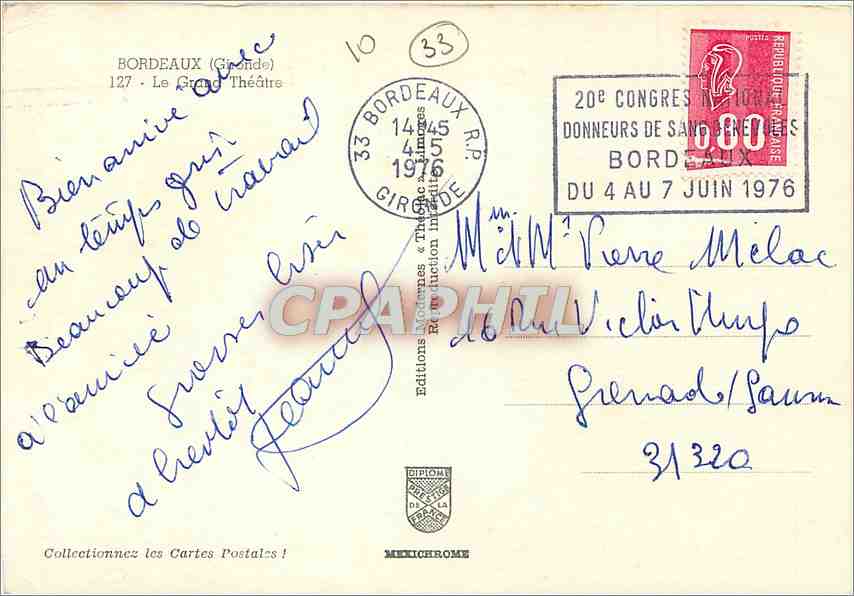 BORDEAUX (Gironde)
127 - Le Grand Théâtre
10
33
33 BORDEAUX R.P.
14H45
4-5
1976
GIRONDE
20e CONGRES NATIONAL
DONNEURS DE SANG BENEVOLES
BORDEAUX
DU 4 AU 7 JUIN 1976
POSTES
REPUBLIQUE FRANÇAISE
0,80
Bien arrivé avec
un temps gris
Beaucoup de travail
à l'arrivée
grosses bises
à bientôt
Editions Modernes « Théojac », Limoges
Reproduction interdite
M. et Mme Pierre Mélac
20 Rue Victor Hugo
Grenade/Garonne
31320
CPAPHIL
DIPLOME
PRESTIGE
DE LA
FRANCE
Collectionnez les Cartes Postales !
MEXICHROME